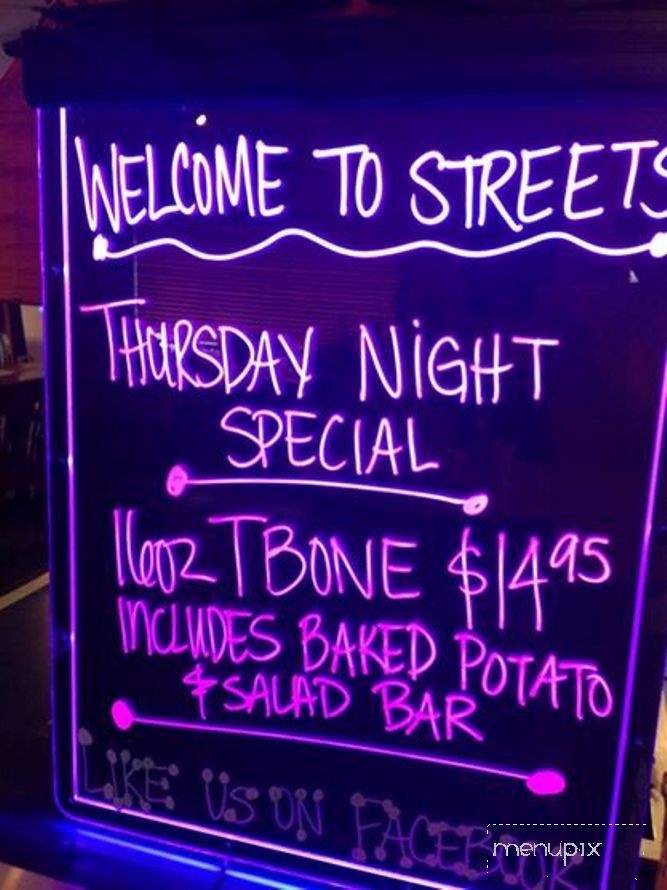 WELCOME TO STREETS
THURSDAY NIGHT
SPECIAL
16oz T BONE $14.95
INCLUDES BAKED POTATO
& SALAD BAR
LIKE US ON FACEBOOK
menupix